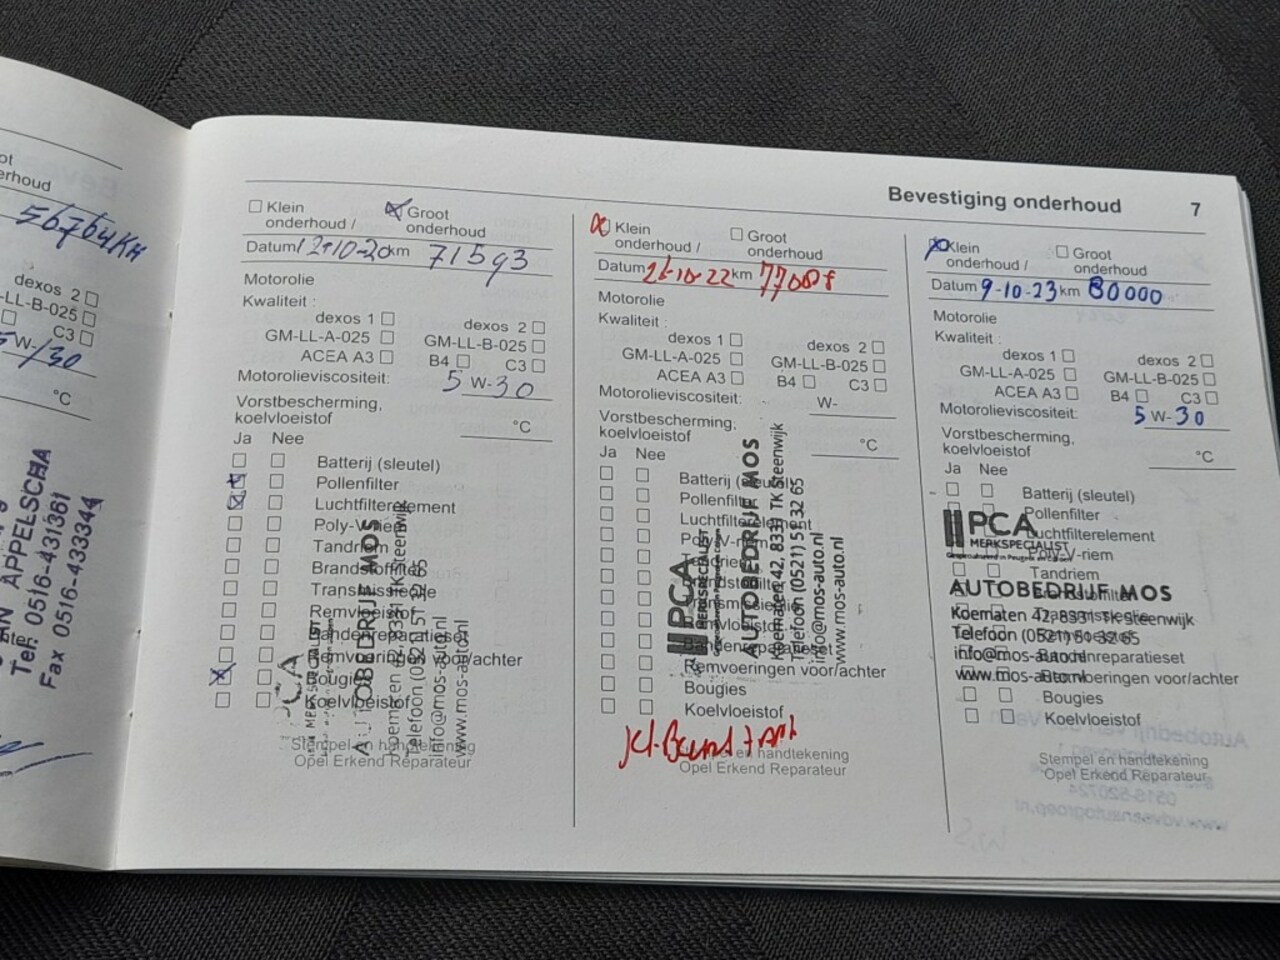 ot
erhoud
56764KM
dexos 2
-LL-B-025
C3
W-/30
°C
AN APPELSCHA
Tel. 0516-431361
Fax 0516-433344
Bevestiging onderhoud 7
Klein onderhoud /
Groot onderhoud
Datum 12-10-20 km 71593
Motorolie
Kwaliteit :
dexos 1 dexos 2
GM-LL-A-025 GM-LL-B-025
ACEA A3 B4 C3
Motorolieviscositeit: 5 W-30
Vorstbescherming,
koelvloeistof °C
Ja Nee
Batterij (sleutel)
Pollenfilter
Luchtfilterelement
Poly-V-riem
Tandriem
Brandstoffilter
Transmissieolie
Remvloeistof
Bandenreparatieset
Remvoeringen voor/achter
Bougies
Koelvloeistof
PCA
MERKSPECIALIST
AUTOBEDRIJF MOS
Koematen 42, 8331 TK Steenwijk
Telefoon (0521) 51 32 65
info@mos-auto.nl
www.mos-auto.nl
Stempel en handtekening
Opel Erkend Reparateur
Klein onderhoud /
Groot onderhoud
Datum 26-10-22 km 77088
Motorolie
Kwaliteit :
dexos 1 dexos 2
GM-LL-A-025 GM-LL-B-025
ACEA A3 B4 C3
Motorolieviscositeit: W-
Vorstbescherming,
koelvloeistof °C
Ja Nee
Batterij (sleutel)
Pollenfilter
Luchtfilterelement
Poly-V-riem
Tandriem
Brandstoffilter
Transmissieolie
Remvloeistof
Bandenreparatieset
Remvoeringen voor/achter
Bougies
Koelvloeistof
PCA
MERKSPECIALIST
AUTOBEDRIJF MOS
Koematen 42, 8331 TK Steenwijk
Telefoon (0521) 51 32 65
info@mos-auto.nl
www.mos-auto.nl
Stempel en handtekening
Opel Erkend Reparateur
Klein onderhoud /
Groot onderhoud
Datum 9-10-23 km 80000
Motorolie
Kwaliteit :
dexos 1 dexos 2
GM-LL-A-025 GM-LL-B-025
ACEA A3 B4 C3
Motorolieviscositeit: 5 W-30
Vorstbescherming,
koelvloeistof °C
Ja Nee
Batterij (sleutel)
Pollenfilter
Luchtfilterelement
Poly-V-riem
Tandriem
Brandstoffilter
Transmissieolie
Remvloeistof
Bandenreparatieset
Remvoeringen voor/achter
Bougies
Koelvloeistof
PCA
MERKSPECIALIST
AUTOBEDRIJF MOS
Koematen 42, 8331 TK Steenwijk
Telefoon (0521) 51 32 65
info@mos-auto.nl
www.mos-auto.nl
Stempel en handtekening
Opel Erkend Reparateur